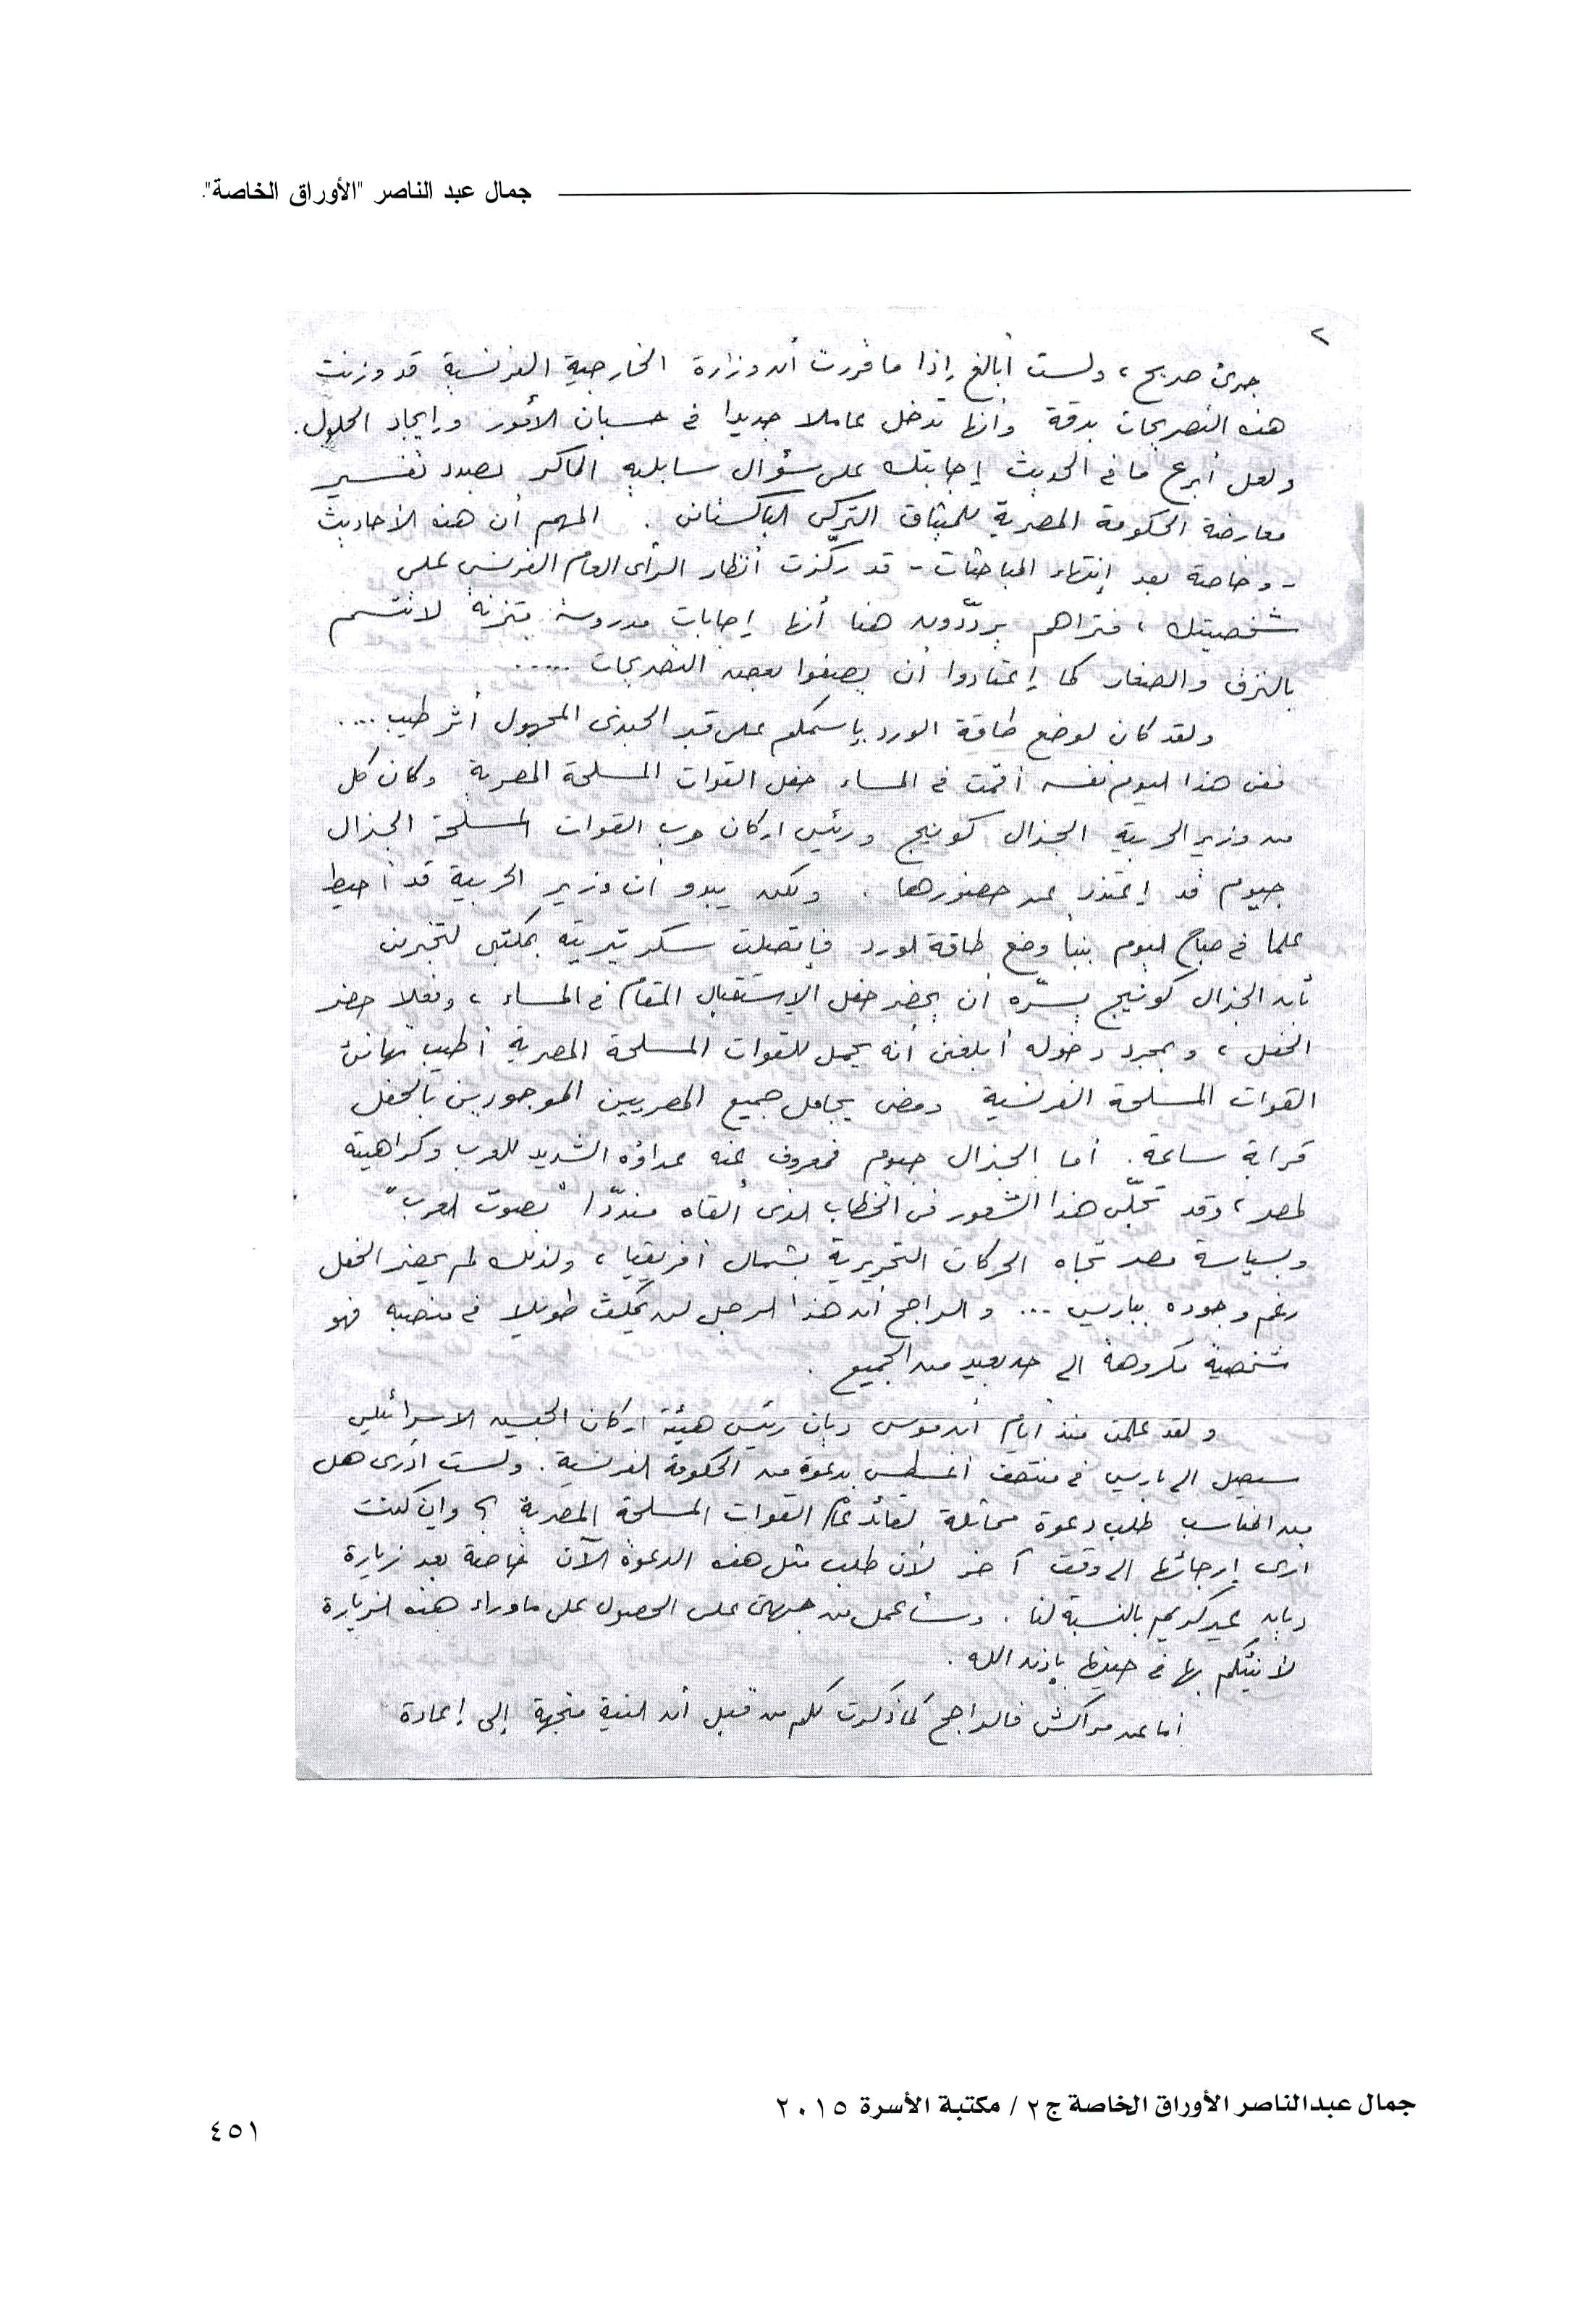 جمال عبد الناصر "الأوراق الخاصة".
٢
جرئ صريح ، ولست أبالغ إذا ما قررت أن وزارة الخارجية الفرنسية قد وزنت
هذه التصريحات بدقة وأنها تدخل عاملا جديدا فى حسبان الأمور وإيجاد الحلول .
ولعل أبرع ما فى الحديث إجابتك على سؤال سابليه الماكر بصدد تفسير
معارضة الحكومة المصرية للميثاق التركى الباكستانى . المهم أن هذه الأحاديث
- وخاصة بعد إنتهاء المباحثات - قد ركّزت أنظار الرأى العام الفرنسى على
شخصيتك ، فتراهم يردّدون هنا أنها إجابات مدروسة متزنة لا تتسم
بالنزق والصغار كما إعتادوا أن يصفوا بعض التصريحات .....
ولقد كان لوضع طاقة الورد بإسمكم على قبر الجندى المجهول أثر طيب ....
ففى هذا اليوم نفسه أقمت فى المساء حفل القوات المسلحة المصرية وكان كل
من وزير الحربية الجنرال كونيج ورئيس اركان حرب القوات المسلحة الجنرال
جيوم قد إعتذر عن حضورهما . ولكن يبدو أن وزير الحربية قد أحيط
علما فى صباح اليوم بنبأ وضع طاقة الورد فإتصلت سكرتيريته بمكتبى لتخبرنى
بأن الجنرال كونيج يسرّه أن يحضر حفل الإستقبال المقام فى المساء ، وفعلا حضر
الحفل ، وبمجرد دخوله أبلغنى أنه يحمل للقوات المسلحة المصرية أطيب تهانى
القوات المسلحة الفرنسية ومضى يجامل جميع المصريين الموجودين بالحفل
قرابة ساعة . أما الجنرال جيوم فمعروف عنه عداؤه الشديد للعرب وكراهيته
لمصر ، وقد تجلّى هذا الشعور فى الخطاب الذى ألقاه مندّدا "بصوت العرب"
وبسياسة مصر تجاه الحركات التحريرية بشمال أفريقيا ، ولذلك لم يحضر الحفل
رغم وجوده بباريس ... والراجح أن هذا الرجل لن يمكث طويلا فى منصبه فهو
شخصية مكروهة الى حد بعيد من الجميع .
ولقد علمت منذ أيام أن موسى ديان رئيس هيئة اركان الجيش الاسرائيلى
سيصل الى باريس فى منتصف أغسطس بدعوة من الحكومة الفرنسية . ولست أدرى هل
من المناسب طلب دعوة مماثلة لقائد عام القوات المسلحة المصرية ؟ وإن كنت
ارى إرجائها الى وقت آخر لأن طلب مثل هذه الدعوة الآن خاصة بعد زيارة
ديان غير كريم بالنسبة لنا . وسأعمل من جهتى على الحصول على ما وراء هذه الزيارة
لأنبئكم بها فى حينها بإذن الله .
أما عن مراكش فالراجح كما ذكرت لكم من قبل أن النية متجهة إلى إعادة
جمال عبدالناصر الأوراق الخاصة ج٢ / مكتبة الأسرة ٢٠١٥
٤٥١